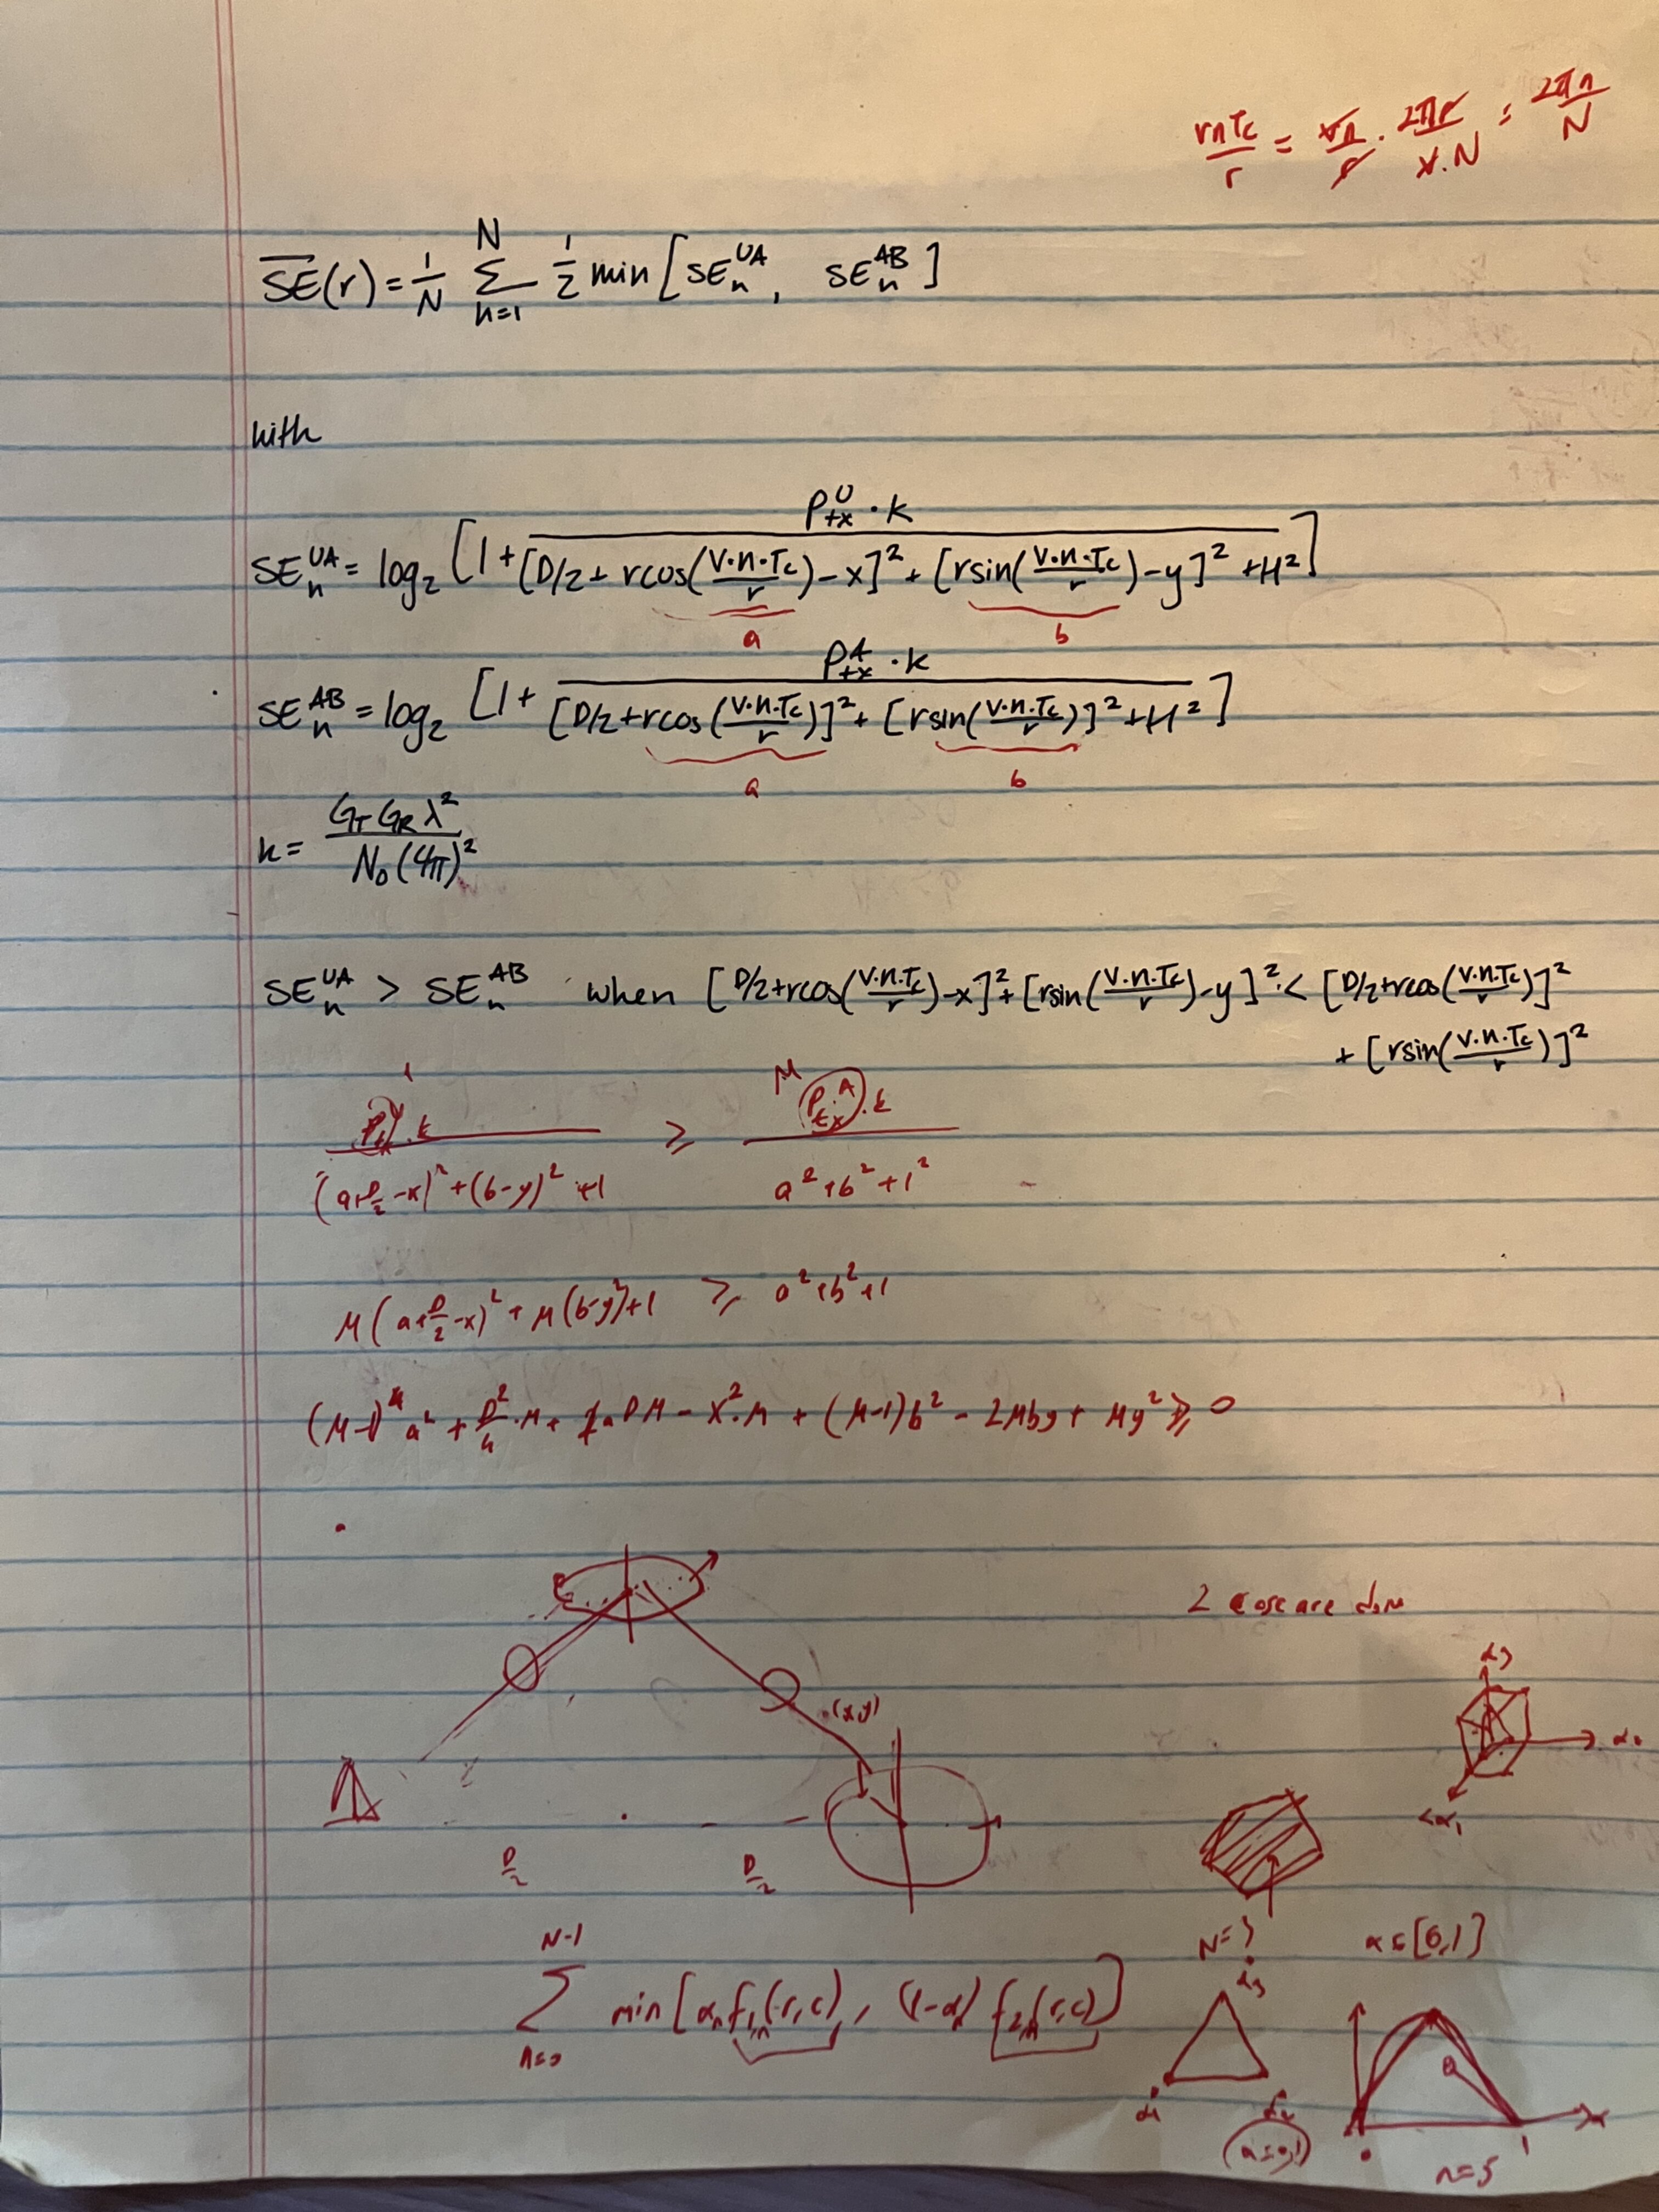 vnTc/r = vn/r · 2πr/v·N = 2πn/N
SE(r) = 1/N Σ_{n=1}^{N} 1/2 min [SE_n^{UA}, SE_n^{AB}]
with
SE_n^{UA} = log₂ [1 + P_{tx}^U · k / [D/2 + rcos(V·n·Tc/r) - x]² + [rsin(V·n·Tc/r) - y]² + H²]
a b
SE_n^{AB} = log₂ [1 + P_{tx}^A · k / [D/2 + rcos(V·n·Tc/r)]² + [rsin(V·n·Tc/r)]² + H²]
a b
k = G_T G_R λ² / N₀ (4π)²
SE_n^{UA} > SE_n^{AB} when [D/2 + rcos(V·n·Tc/r) - x]² + [rsin(V·n·Tc/r) - y]² < [D/2 + rcos(V·n·Tc/r)]²
+ [rsin(V·n·Tc/r)]²
1 M
P_{tx}^U · k / (a + D/2 - x)² + (b - y)² + 1 ≥ P_{tx}^A · k / a² + b² + 1²
M(a + D/2 - x)² + M(b - y)² + 1 ≥ a² + b² + 1
(M-1) a² + D²/4 · M + aDM - x²·M + (M-1)b² - 2Mby + My² ≥ 0
2 case are
(x,y)
D/2 D/2
N=3 α∈[0,1]
Σ_{n=0}^{N-1} min [α_n f_{1,n}(r,c), (1-α) f_{2,n}(r,c)]
0 1
n=5